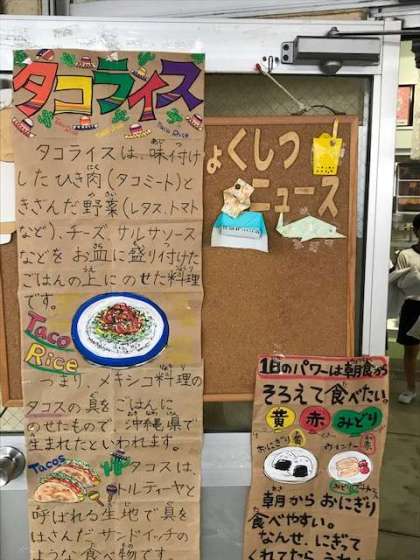 タコライス
Taco Rice
タコライスは、味付け
したひき肉(タコミート)と
きざんだ野菜(レタス、トマト
など)、チーズ、サルサソース
などをお皿に盛り付けた
ごはんの上にのせた料理
です。
Taco
Rice
つまり、メキシコ料理の
タコスの具をごはんに
のせたもので、沖縄県で
生まれたといわれます。
Tacos
タコスは、
トルティーヤと
呼ばれる生地で具を
はさんだサンドイッチの
ような食べ物です。
ょくしつ
ニュース
1日のパワーは朝食から
そろえて食べたい。
黄 赤 みどり
おにぎり 黄
ウィンナー 赤
朝からおにぎり
食べやすい。
なんせ、にぎて